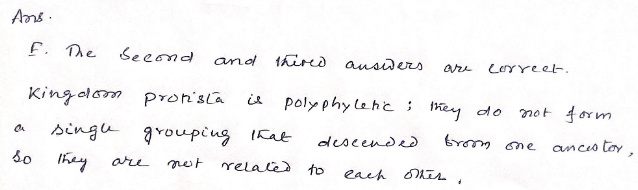 Ans.
E. The second and third answers are correct.
Kingdom protista is polyphyletic ; they do not form
a single grouping that descended from one ancestor,
so they are not related to each other.